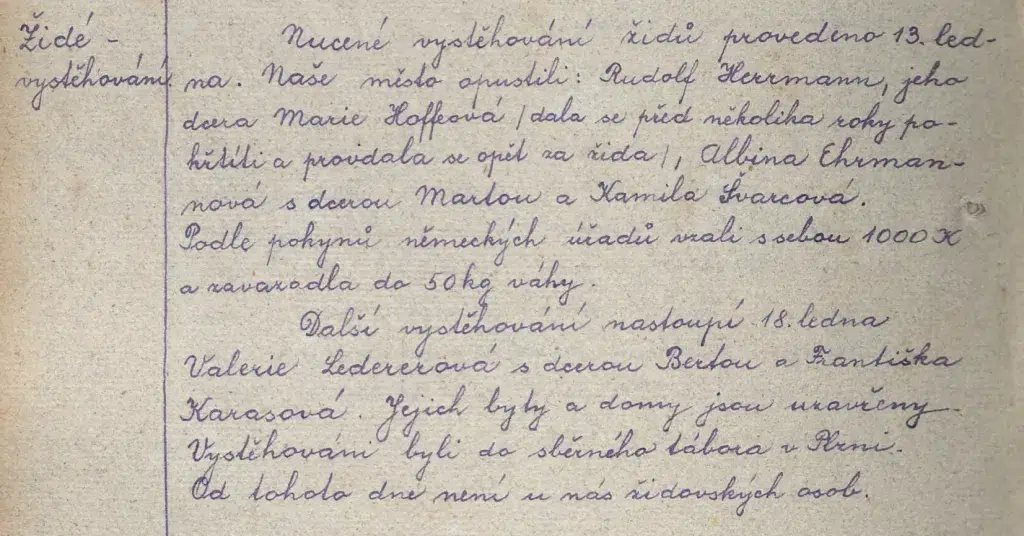 Židé -
vystěhování.
Nucené vystěhování židů provedeno 13. led-
na. Naše město opustili: Rudolf Herrmann, jeho
dcera Marie Hoffeová /dala se před několika roky po-
křtíti a provdala se opět za žida/, Albina Ehrman-
nová s dcerou Martou a Kamila Švarcová.
Podle pokynů německých úřadů vzali s sebou 1000 K
a zavazadla do 50 kg váhy.
Další vystěhování nastoupí 18. ledna
Valerie Ledererová s dcerou Bertou a Františka
Karasová. Jejich byty a domy jsou uzavřeny.
Vystěhováni byli do sběrného tábora v Plzni.
Od tohoto dne není u nás židovských osob.